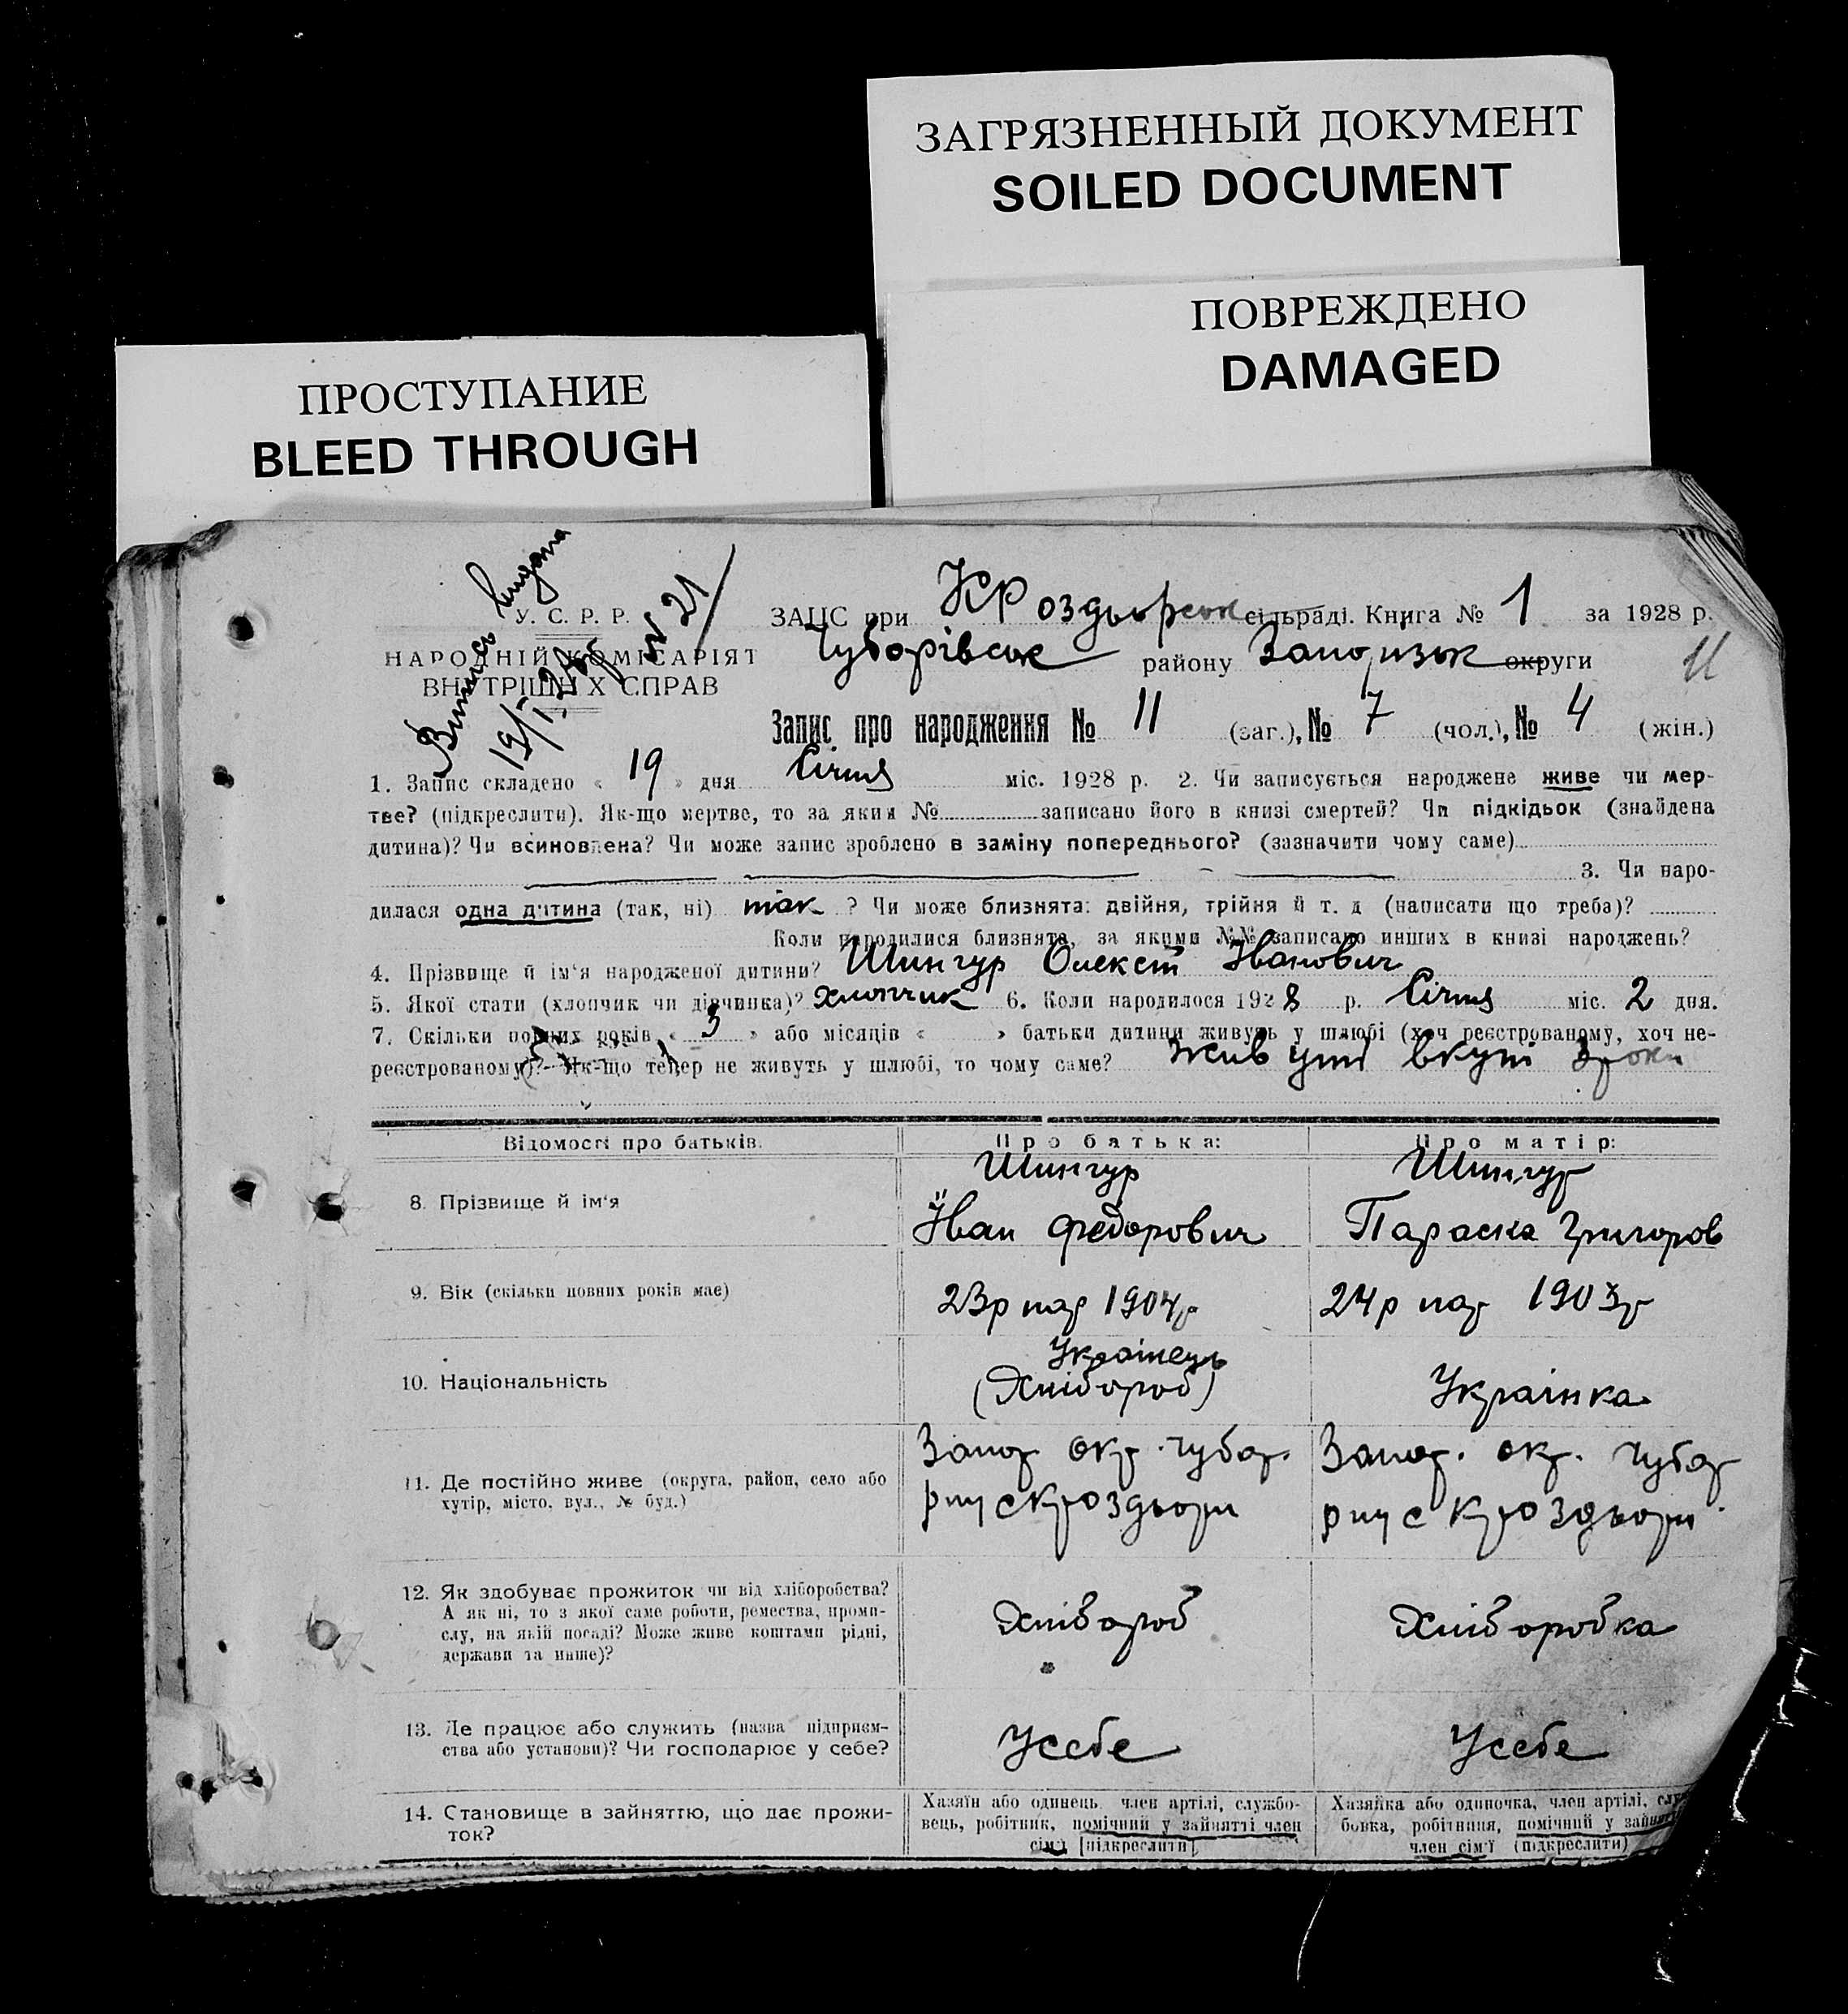 ЗАГРЯЗНЕННЫЙ ДОКУМЕНТ
SOILED DOCUMENT
ПОВРЕЖДЕНО
DAMAGED
ПРОСТУПАНИЕ
BLEED THROUGH
Випись видана
19/I 28р № 21
У. С. Р. Р.
НАРОДНІЙ КОМІСАРІЯТ
ВНУТРІШНІХ СПРАВ
ЗАЦС при КРоздорськ сільраді. Книга № 1 за 1928 р.
Чубарівськ району Запорізьк округи
11
Запис про народження № 11 (заг.), № 7 (чол.), № 4 (жін.)
1. Запис складено « 19 » дня Січня міс. 1928 р. 2. Чи записується народжене живе чи мер-
тве? (підкреслити). Як-що мертве, то за яким № записано його в книзі смертей? Чи підкідьок (знайдена
дитина)? Чи всиновлена? Чи може запис зроблено в заміну попереднього? (зазначити чому саме)
3. Чи наро-
дилася одна дитина (так, ні) так ? Чи може близнята: двійня, трійня й т. д (написати що треба)?
Коли народилися близнята, за якими №№ записано инших в книзі народжень?
4. Прізвище й ім'я народженої дитини? Шингур Олексій Іванович
5. Якої стати (хлопчик чи дівчинка)? хлопчик 6. Коли народилося 1928 р. Січня міс. 2 дня.
7. Скільки повних років « 3 » або місяців « » батьки дитини живуть у шлюбі (хоч реєстрованому, хоч не-
реєстрованому)? Як-що тепер не живуть у шлюбі, то чому саме? живуть вкупі 3 роки
Відомості про батьків. Про батька: Про матір:
8. Прізвище й ім'я Шингур Іван Федорович Шингур Параска Григоров
9. Вік (скільки повних років має) 23р нар 1904р 24р нар 1903р
10. Національність Українець (Хлібороб) Українка
11. Де постійно живе (округа, район, село або
хутір, місто, вул., № буд.)
Запор окр. Чубар.
рну с Кроздьори
Запор. окр. Чубар
рну с Кроздьори
12. Як здобуває прожиток чи від хліборобства?
А як ні, то з якої саме роботи, ремества, проми-
слу, на якій посаді? Може живе коштами рідні,
держави та инше)?
Хлібороб Хліборобка
13. Де працює або служить (назва підприєм-
ства або установи)? Чи господарює у себе?
Усебе Усебе
14. Становище в зайняттю, що дає прожи-
ток?
Хазяїн або одинець член артілі, службо-
вець, робітник, помічний у зайнятті член
сім'ї [підкреслити]
Хазяйка або одиночка, член артілі, слу
бовка, робітниця, помічний у зайнятті
член сім'ї (підкреслити)